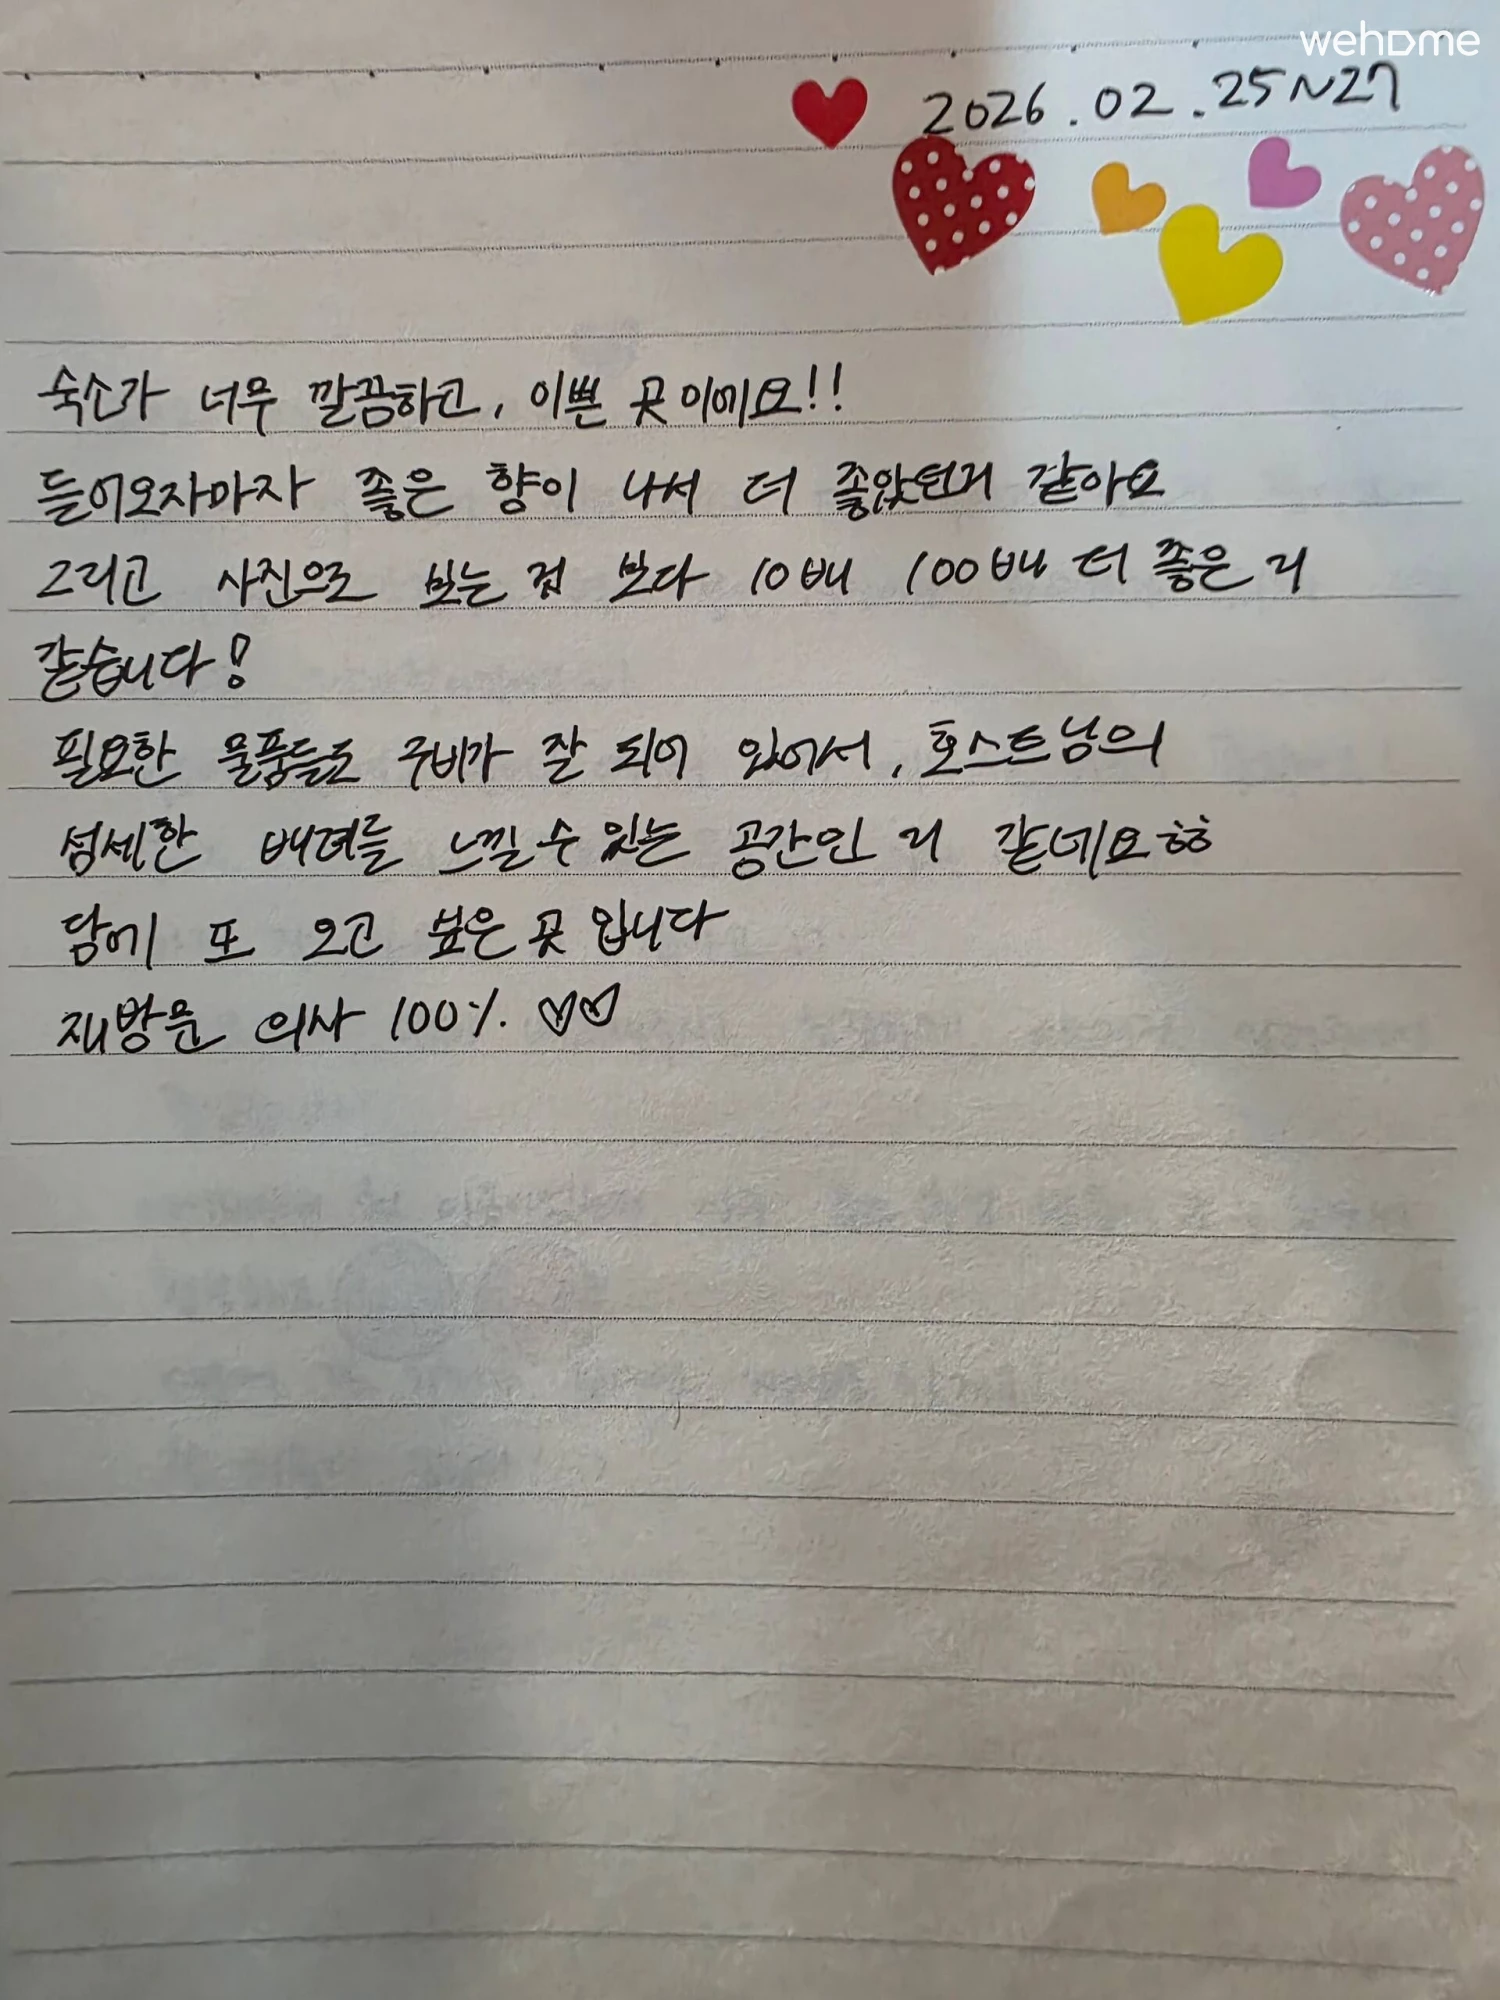 wehome
2026.02.25~27
숙소가 너무 깔끔하고, 이쁜 곳이에요!!
들어오자마자 좋은 향이 나서 더 좋았던거 같아요
그리고 사진으로 보는 것 보다 10배 100배 더 좋은 거
같습니다!
필요한 물품들도 구비가 잘 되어 있어서, 호스트님의
섬세한 배려를 느낄 수 있는 공간인 거 같네요ㅎㅎ
담에 또 오고 싶은 곳 입니다
재방문 의사 100%. ♡♡